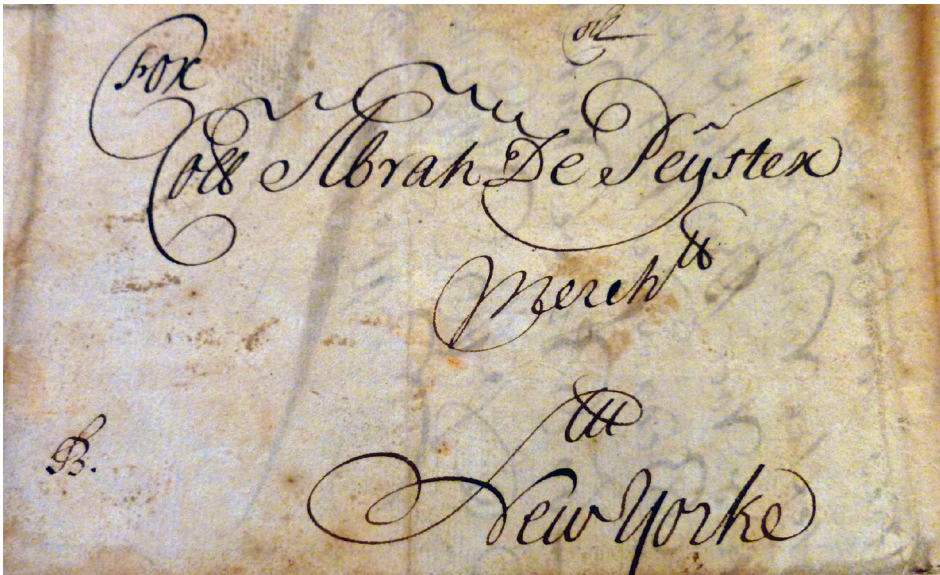 For
Coll Abrah De Peyster
Merchtt
Att
New Yorke
B.